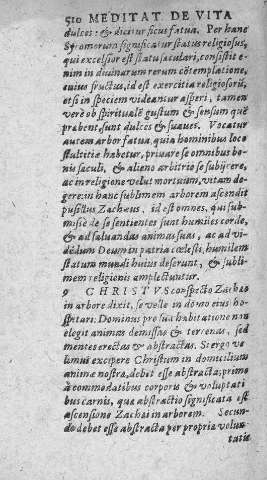 510 MEDITAT. DE VITA
dulces: & dicitur ficus fatua. Per hanc
Sycomorum significatur status religiosus,
qui excelsior est statu sæculari, consistit e-
nim in divinarum rerum cõtemplatione,
cuius fructus, id est exercitia religiosorũ,
etsi in speciem videantur asperi, tamen
verè ob spiritualẽ gustum & sensum quẽ
præbent, sunt dulces & suaves. Vocatur
autem arbor fatua, quia hominibus loco
stultitiæ habetur, privare se omnibus bo-
nis sæculi, & alieno arbitrio se subijcere,
ac in religione velut mortuum, vitam de-
gere: in hanc sublimem arborem ascendit
pusillus Zachæus, id est omnes, qui sub-
missè de se sentientes sunt humiles corde,
& ad salvandas animas suas, ac ad vi-
dẽdum Deum in patria cœlesti, humilem
statum mundi huius deserunt, & subli-
mem religionis amplectuntur.
9 CHRISTVS conspecto Zachæo
in arbore dixit, se velle in domo eius ho-
spitari. Dominus pro sua habitatione non
elegit animas demissas & terrenas, sed
mentes erectas & abstractas. Si ergo vo-
lumus excipere Christum in domicilium
animæ nostræ, debet esse abstracta; primò
à commoditatibus corporis & voluptati
bus carnis, quæ abstractio significata est
ascensione Zachæi in arborem. Secun-
do debet esse abstracta per propria volun-
tatis